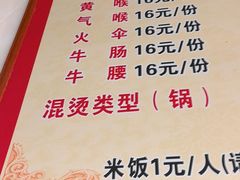 黄喉 16元/份
气喉 16元/份
火伞 16元/份
牛肠 16元/份
牛腰 16元/份
混烫类型（锅）
米饭1元/人(请